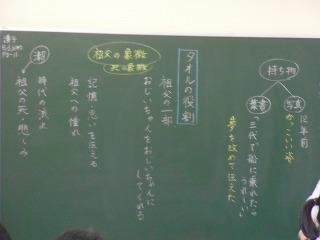 持ち物
写真
12年前
かっこいい爺
葉書
「三代で船に乗れたな
うれしい」
夢を改めて伝えた
タオルの役割
祖父の一部
おじいちゃんをおじいちゃんに
してくれる
祖父の象徴
死の象徴
記憶・思いを伝える
祖父への憧れ
潮
時代の流れ
祖父の死・悲しみ